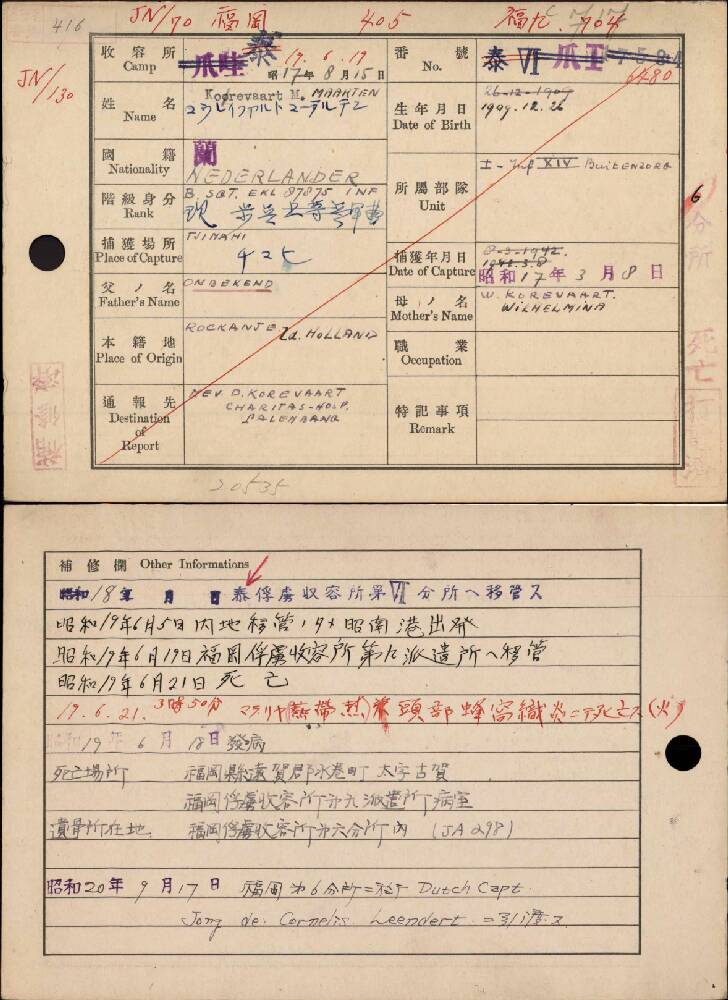 416 JN/70 福岡 405 福忙 704
JN/130
收容所 Camp 爪哇 泰 19.6.19
昭17年8月15日
番號 No. 泰 VI 爪王 17584
6480
姓名 Name Koorevaart M. MAARTEN
生年月日 Date of Birth 26-12-1909
1909.12.26
國籍 Nationality 蘭
NEDERLANDER
階級身分 Rank B. SGT. EKL 87875 INF
所屬部隊 Unit I-Inf XIV Buitenzorg
6分所
捕獲場所 Place of Capture TJIMAHI
チマヒ
捕獲年月日 Date of Capture 8-3-1942.
1942.3.8
昭和17年3月8日
父ノ名 Father's Name ONBEKEND
母ノ名 Mother's Name W. KOREVAART.
WILHELMINA
本籍地 Place of Origin ROCKANJE Zd. HOLLAND
職業 Occupation
死亡
通報先 Destination of Report MEV. D. KOREVAART
CHARITAS-HOSP.
PALEMBANG
特記事項 Remark
20535
補修欄 Other Informations
昭和18年 月 日 泰俘虜收容所第VI分所ヘ移管ス
昭和19年6月5日内地移管ノタメ昭南港出発
昭和19年6月19日福岡俘虜收容所第九派遣所ヘ移管
昭和19年6月21日死亡
19.6.21. 3時50分 マラリヤ(熱帯熱)兼頭部蜂窩織炎ニテ死亡ス(火)
昭和19年6月18日發病
死亡場所 福岡縣遠賀郡水巻町大字古賀
福岡俘虜收容所第九派遣所病室
遺骨所在地 福岡俘虜收容所第六分所内 (JA298)
昭和20年9月17日 福岡第6分所ニ於テ Dutch Capt.
Jong de. Cornelis Leendert. ニ引渡ス